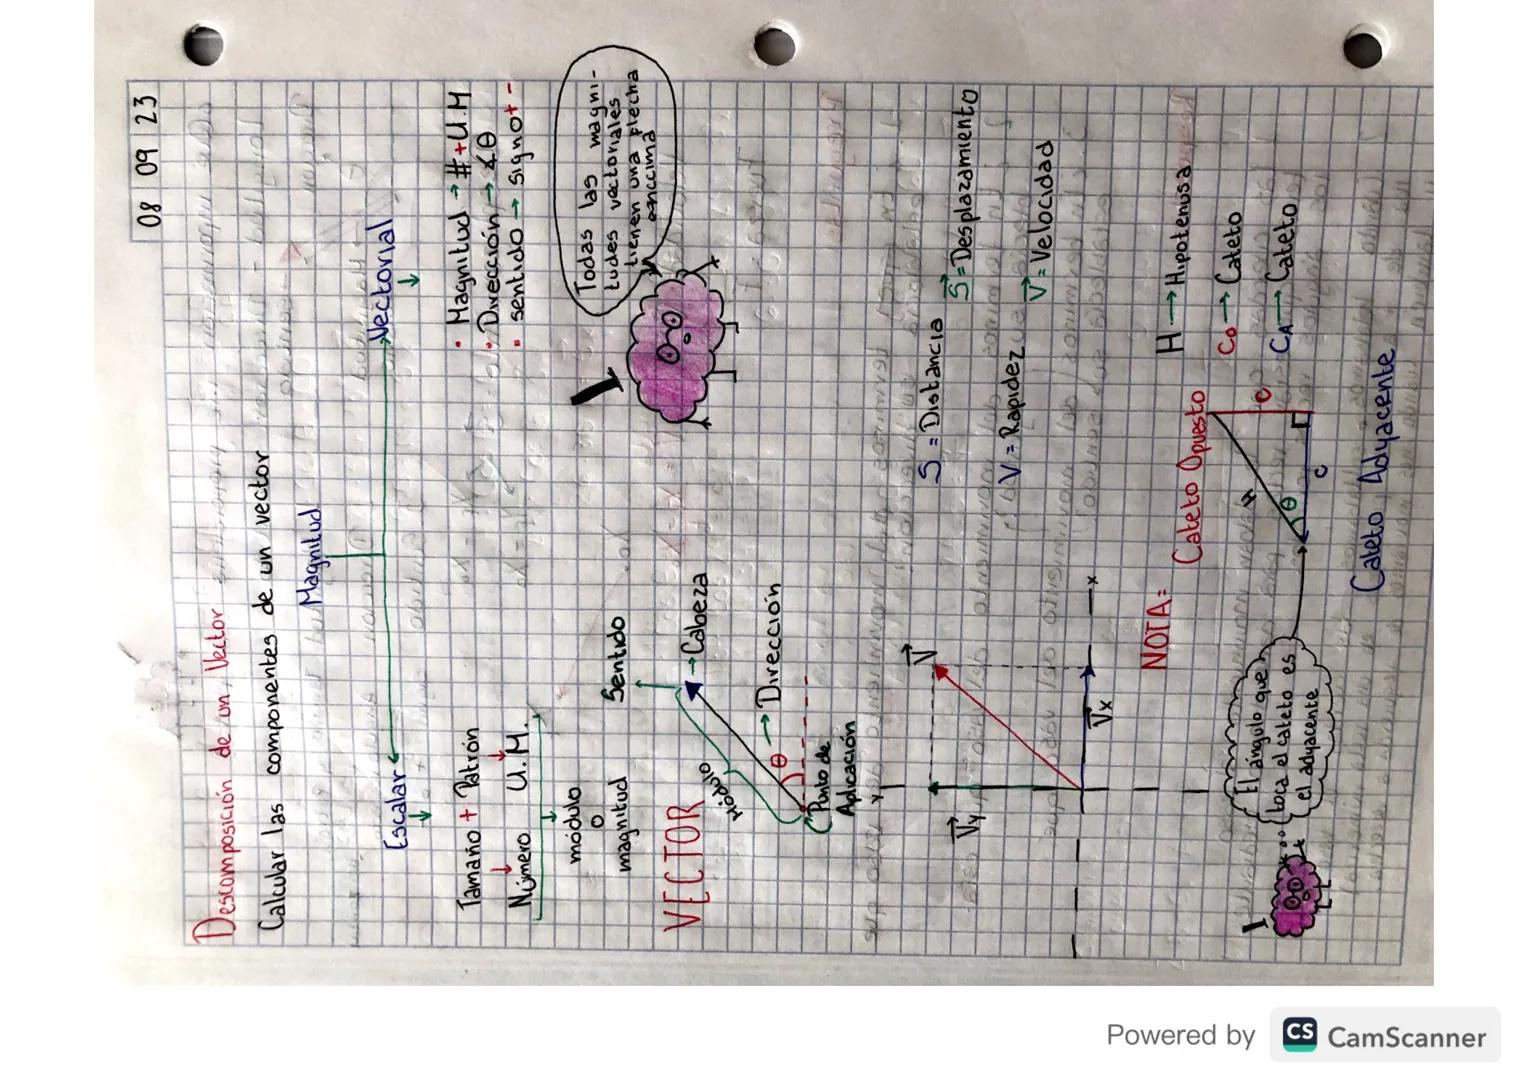 08 09 23
Descomposición de un Vector
Calcular las componentes de un vector
Magnitud
Escalar
Vectorial
Tamaño + Patrón
Número U.M.
módulo
o
magnitud
• Magnitud → # + U.M
• Dirección → ∡θ
• sentido → signo + -
Todas las magni-
tudes vectoriales
tienen una flecha
enccima
VECTOR
Sentido
Cabeza
Módulo
θ → Dirección
Punto de
Aplicación
S = Distancia
S⃗ = Desplazamiento
V = Rapidez
V⃗ = Velocidad
y
V⃗
V⃗y
V⃗x
x
NOTA:
Cateto Opuesto
H → Hipotenusa
Co → Cateto
CA → Cateto
H
θ
C
C
Cateto Adyacente
El ángulo que
toca el cateto es
el adyacente
Powered by CS CamScanner